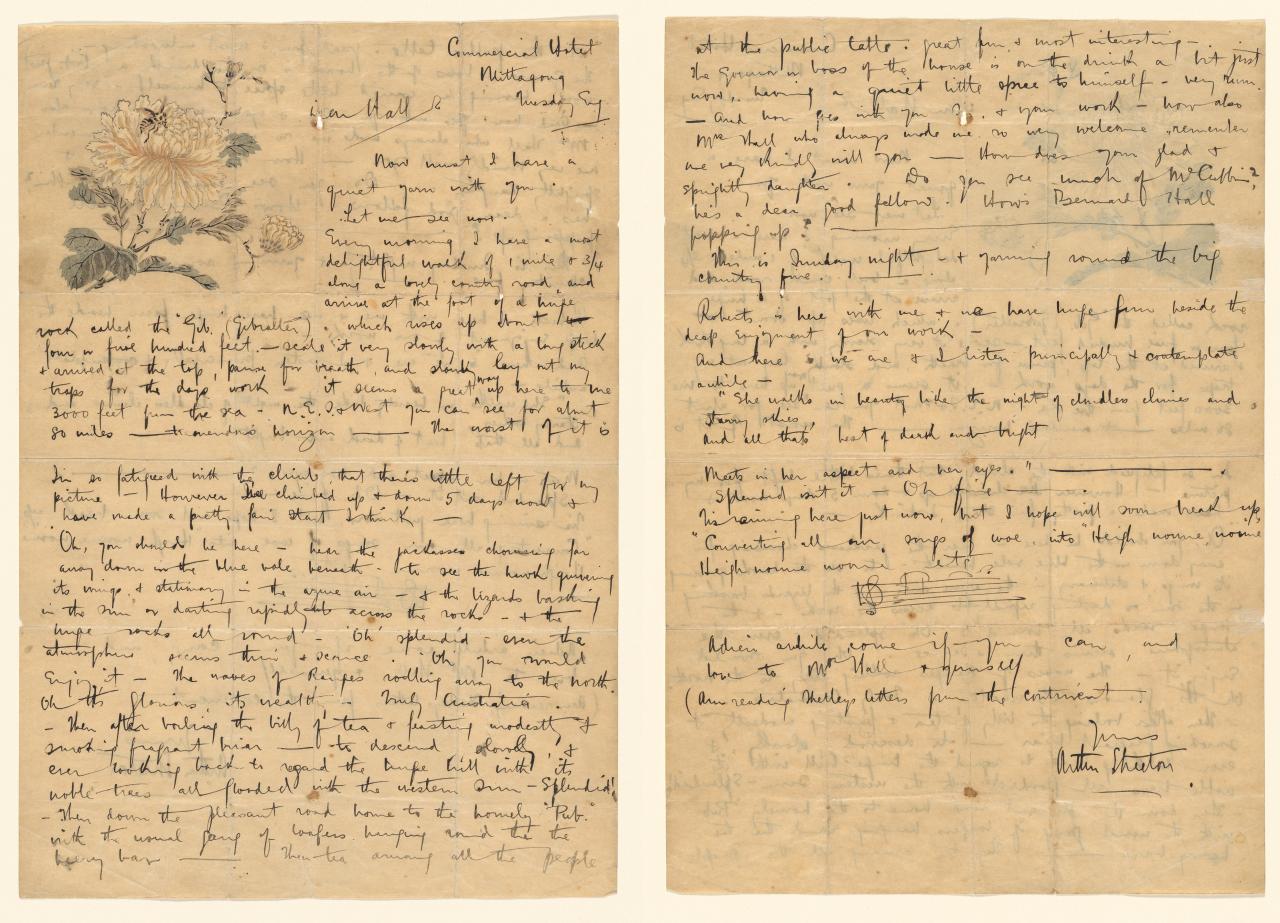 Commercial Hotel
Mittagong
Tuesday Evg
Dear Hall &
Now must I have a
quiet yarn with you.
Let me see now.
Every morning I have a most
delightful walk of 1 mile & 3/4
along a lovely country road, and
arrive at the foot of a huge
rock called the "Gib. (Gibralter). which rises up about
four or five hundred feet. — scale it very slowly with a long stick
& arrived at the top, pause for breath, and lay out my
traps for the days work — it seems a great way up here to me
3000 feet from the sea - N.E.S. & West you can see for about
80 miles — tremendous horizon — The worst of it is
Im so fatigued with the climb, that there's little left for my
picture — However Ive climbed up & down 5 days now &
have made a pretty fair start I think —
Oh, you should be here — hear the jackasses chorusing far
away down in the blue vale beneath - to see the hawk quivering
its wings & stationary in the azure air — & the lizards basking
in the sun or darting rapidly across the rocks - & the
huge rocks all round - 'Oh' splendid - even the
atmosphere seems thin & scarce. Oh you would
Enjoy it — The waves of Ranges rolling away to the north.
Oh its Glorious its wealth - Truly Australia.
- Then after boiling the billy of tea & feasting modestly &
smoking fragrant briar — to descend slowly, &
ever looking back to regard the huge hill with its
noble trees all flooded with the western sun - Splendid!
- Then down the pleasant road home to the homely "Pub."
with the usual gang of loafers hanging round the the
beery bar — Then tea among all the people
at the public table. great fun & most interesting —
The Governor or boss of the house is on the drink a bit just
now, having a quiet little spree to himself - very rum.
— And how goes it with you & your work - how also
Mrs Hall who always made me so very welcome, remember
me very kindly will you — How does your glad &
sprightly daughter. Do you see much of McCubbin?
he's a dear good fellow. Hows Bernard Hall
popping up?
This is Sunday night - & yarning round the big
country fire.
Roberts is here with me & we have huge fun beside the
deep Enjoyment of our work —
And here we are & I listen principally & contemplate
awhile —
"She walks in beauty like the night of cloudless climes and
starry skies,
and all thats best of dark and bright
Meets in her aspect and her eyes." —
Splendid isnt it — Oh fine —
Tis raining here just now, but I hope will soon break up
"Converting all our songs of woe, into "Heigh nonnie, nonnie"
Heigh nonnie nonnie etc.
Adieu awhile, come if you can, and
love to Mrs Hall & yourself
(Am reading Shelleys letters from the continent.
Yours
Arthur Streeton